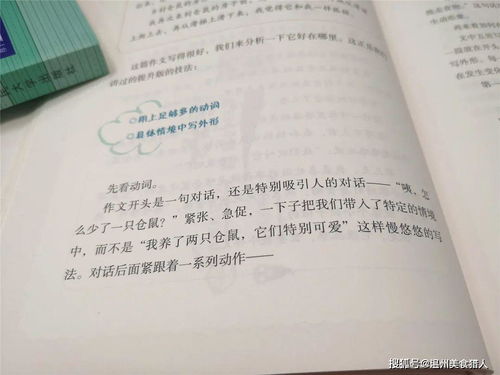 上跑上去，再从滑梯上滑下来，我觉得它和我一样孤独。
这篇作文写得很好，我们来分析一下它好在哪里。这正是我们
讲过的拔升版的技法：
用上足够多的动词
具体情境中写外形
先看动词。
作文开头是一句对话，还是特别吸引人的对话——“咦，怎
么少了一只仓鼠？”紧张、急促，一下子把我们带入了特定的情境
中，而不是“我养了两只仓鼠，它们特别可爱”这样慢悠悠的写
法。对话后面紧跟着一系列动作——
大学出版社
生动形象。
写外形。
在发生变
第一
搜狐号@温州美食猎人